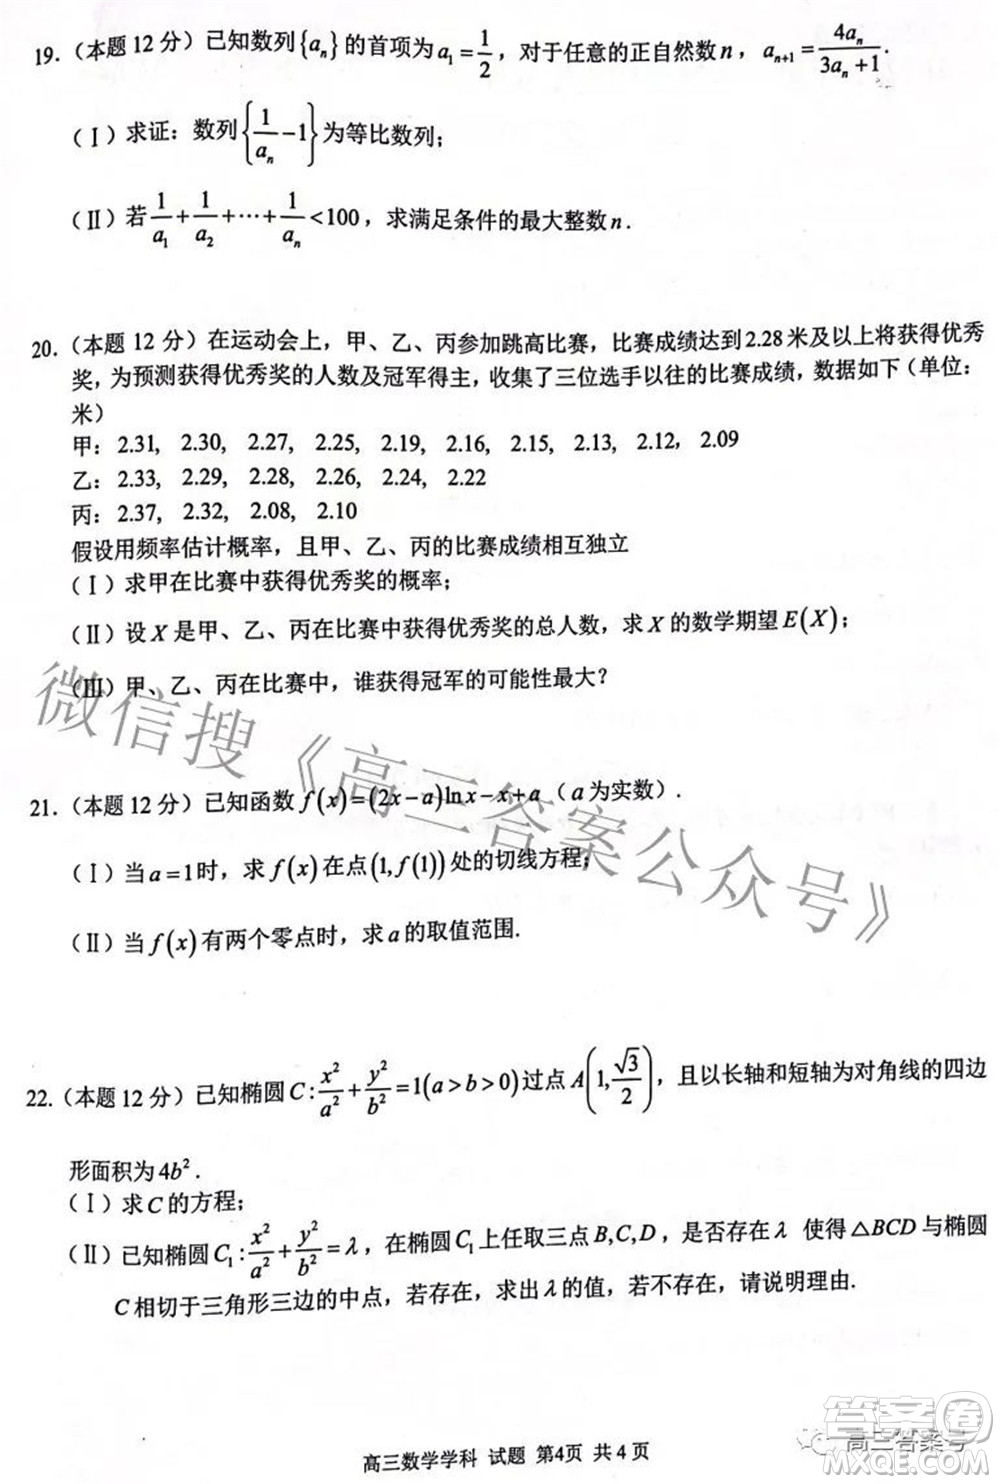 19.（本题12分）已知数列{aₙ}的首项为a₁=1/2，对于任意的正自然数n，aₙ₊₁=4aₙ/(3aₙ+1).
（Ⅰ）求证：数列{1/aₙ-1}为等比数列；
（Ⅱ）若1/a₁+1/a₂+⋯+1/aₙ<100，求满足条件的最大整数n.
20.（本题12分）在运动会上，甲、乙、丙参加跳高比赛，比赛成绩达到2.28米及以上将获得优秀
奖，为预测获得优秀奖的人数及冠军得主，收集了三位选手以往的比赛成绩，数据如下（单位：
米）
甲：2.31，2.30，2.27，2.25，2.19，2.16，2.15，2.13，2.12，2.09
乙：2.33，2.29，2.28，2.26，2.24，2.22
丙：2.37，2.32，2.08，2.10
假设用频率估计概率，且甲、乙、丙的比赛成绩相互独立
（Ⅰ）求甲在比赛中获得优秀奖的概率；
（Ⅱ）设X是甲、乙、丙在比赛中获得优秀奖的总人数，求X的数学期望E(X)；
（Ⅲ）甲、乙、丙在比赛中，谁获得冠军的可能性最大？
微信搜《高三答案公众号》
21.（本题12分）已知函数f(x)=(2x-a)lnx-x+a（a为实数）.
（Ⅰ）当a=1时，求f(x)在点(1,f(1))处的切线方程；
（Ⅱ）当f(x)有两个零点时，求a的取值范围.
22.（本题12分）已知椭圆C:x²/a²+y²/b²=1(a>b>0)过点A(1,√3/2)，且以长轴和短轴为对角线的四边
形面积为4b².
（Ⅰ）求C的方程；
（Ⅱ）已知椭圆C₁:x²/a²+y²/b²=λ，在椭圆C₁上任取三点B,C,D，是否存在λ 使得△BCD与椭圆
C相切于三角形三边的中点，若存在，求出λ的值，若不存在，请说明理由.
高三数学学科 试题 第4页 共4页
高三答案号
答案圈